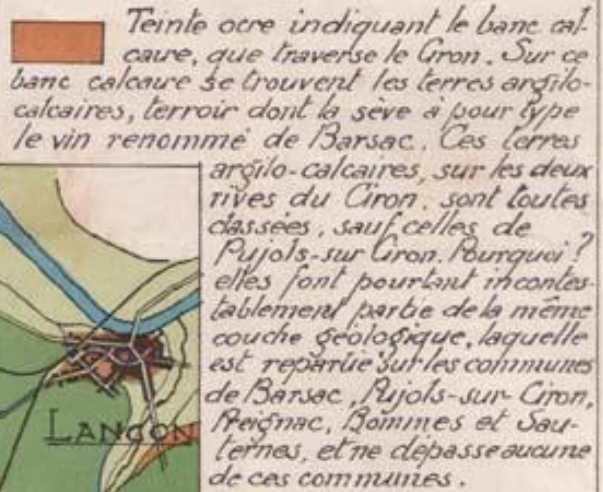 Teinte ocre indiquant le banc cal-
caire, que traverse le Ciron. Sur ce
banc calcaire se trouvent les terres argilo-
calcaires, terroir dont la sève à pour type
le vin renommé de Barsac. Ces terres
argilo-calcaires, sur les deux
rives du Ciron, sont toutes
classées, sauf celles de
Pujols-sur Ciron. Pourquoi?
elles font pourtant incontes-
tablement partie de la même
couche géologique, laquelle
est repartie sur les communes
de Barsac, Pujols-sur-Ciron,
Preignac, Bommes et Sau-
ternes, et ne dépasse aucune
de ces communes.
LANGON